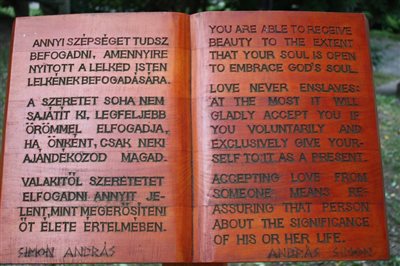 ANNYI SZÉPSÉGET TUDSZ
BEFOGADNI, AMENNYIRE
NYITOTT A LELKED ISTEN
LELKÉNEK BEFOGADÁSÁRA.
A SZERETET SOHA NEM
SAJÁTÍT KI, LEGFELJEBB
ÖRÖMMEL ELFOGADJA,
HA ÖNKÉNT, CSAK NEKI
AJÁNDÉKOZOD MAGAD.
VALAKITŐL SZERETETET
ELFOGADNI ANNYIT JE-
LENT, MINT MEGERŐSÍTENI
ŐT ÉLETE ÉRTELMÉBEN.
SIMON ANDRÁS
YOU ARE ABLE TO RECEIVE
BEAUTY TO THE EXTENT
THAT YOUR SOUL IS OPEN
TO EMBRACE GOD'S SOUL.
LOVE NEVER ENSLAVES:
AT THE MOST IT WILL
GLADLY ACCEPT YOU IF
YOU VOLUNTARILY AND
EXCLUSIVELY GIVE YOUR-
SELF TO IT AS A PRESENT.
ACCEPTING LOVE FROM
SOMEONE MEANS RE-
ASSURING THAT PERSON
ABOUT THE SIGNIFICANCE
OF HIS OR HER LIFE.
ANDRÁS SIMON